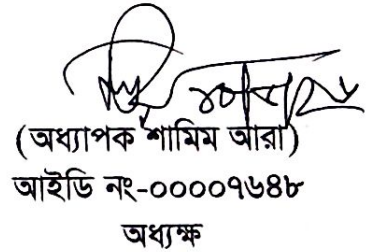 (অধ্যাপক শামিম আরা)
আইডি নং-০০০০৭৬৪৮
অধ্যক্ষ